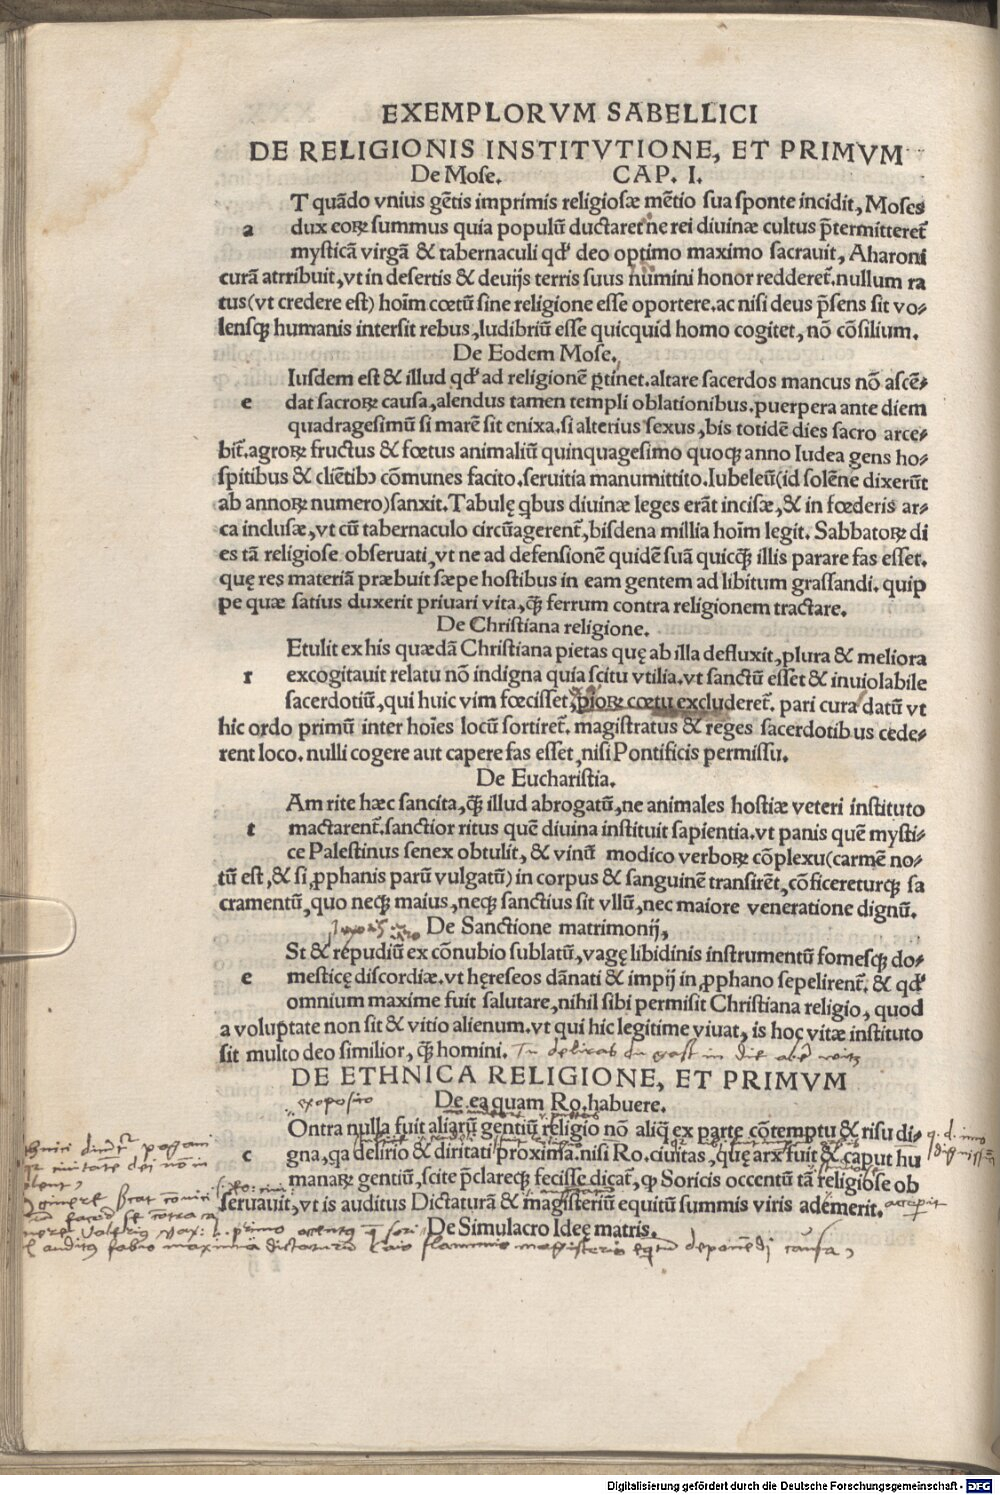 EXEMPLORVM SABELLICI
DE RELIGIONIS INSTITVTIONE, ET PRIMVM
De Mose. CAP. I.
T quãdo vnius gẽtis imprimis religiosæ mẽtio sua sponte incidit, Moses
a dux eoꝝ summus quia populũ ductaret ne rei diuinæ cultus p̃termitteret̃
mysticã virgã & tabernaculi qđ deo optimo maximo sacrauit, Aharoni
curã atrribuit, vt in desertis & deuijs terris suus numini honor redderet̃. nullum ra
tus (vt credere est) hoĩm cœtũ sine religione esse oportere. ac nisi deus p̃sens sit vo-
lensqꝫ humanis intersit rebus, ludibriũ esse quicquid homo cogitet, nõ cõsilium.
De Eodem Mose.
Iusdem est & illud qđ ad religionẽ ꝑtinet. altare sacerdos mancus nõ ascẽ-
e dat sacroꝝ causa, alendus tamen templi oblationibus. puerpera ante diem
quadragesimũ si marẽ sit enixa. si alterius sexus, bis totidẽ dies sacro arce-
bit̃. agroꝝ fructus & fœtus animaliũ quinquagesimo quoqꝫ anno Iudea gens ho-
spitibus & cliẽtibꝰ cõmunes facito. seruitia manumittito. Iubeleũ (id solẽne dixerũt
ab annoꝝ numero) sanxit. Tabulę q̃bus diuinæ leges erãt incisæ, & in fœderis ar-
ca inclusæ, vt cũ tabernaculo circũagerent̃, bisdena millia hoĩm legit. Sabbatoꝝ di
es tã religiose obseruati, vt ne ad defensionẽ quidẽ suã quicq̃ illis parare fas esset.
quę res materiã præbuit sæpe hostibus in eam gentem ad libitum grassandi. quip
pe quæ satius duxerit priuari vita, q̃ ferrum contra religionem tractare.
De Christiana religione.
Etulit ex his quædã Christiana pietas quę ab illa defluxit, plura & meliora
r excogitauit relatu nõ indigna quia scitu vtilia. vt sanctũ esset & inuiolabile
sacerdotiũ, qui huic vim fœcisset, pioꝝ cœtu excluderet̃. pari cura datũ vt
hic ordo primũ inter hoĩes locũ sortiret̃. magistratus & reges sacerdotibus cede-
rent loco. nulli cogere aut capere fas esset, nisi Pontificis permissu.
De Eucharistia.
Am rite hæc sancita, q̃ illud abrogatũ, ne animales hostiæ veteri instituto
t mactarent̃. sanctior ritus quẽ diuina instituit sapientia. vt panis quẽ mysti-
ce Palestinus senex obtulit, & vinũ modico verboꝝ cõplexu (carmẽ no-
tũ est, & si ꝓphanis parũ vulgatũ) in corpus & sanguinẽ transirẽt, cõficereturqꝫ sa
cramentũ, quo neqꝫ maius, neqꝫ sanctius sit vllũ, nec maiore veneratione dignũ.
De Sanctione matrimonij,
St & repudiũ ex cõnubio sublatũ, vagę libidinis instrumentũ fomesqꝫ do-
e mesticę discordiæ. vt hęreseos dãnati & impij in ꝓphano sepelirent̃. & qđ
omnium maxime fuit salutare, nihil sibi permisit Christiana religio, quod
a voluptate non sit & vitio alienum. vt qui hic legitime viuat, is hoc vitæ instituto
sit multo deo similior, q̃ homini.
DE ETHNICA RELIGIONE, ET PRIMVM
De ea quam Ro. habuere.
Ontra nulla fuit aliarũ gentiũ religio nõ aliq̃ ex parte cõtemptu & risu di-
c gna, q̃a delirio & diritati proxima. nisi Ro. ciuitas, quę arx fuit & caput hu
manaꝝ gentiũ, scite p̃clareqꝫ fecisse dicat̃, ꝙ Soricis occentũ tã religiose ob
seruauit, vt is auditus Dictaturã & magisteriũ equitũ summis viris ademerit.
De Simulacro Ideę matris.
Digitalisierung gefördert durch die Deutsche Forschungsgemeinschaft - DFG